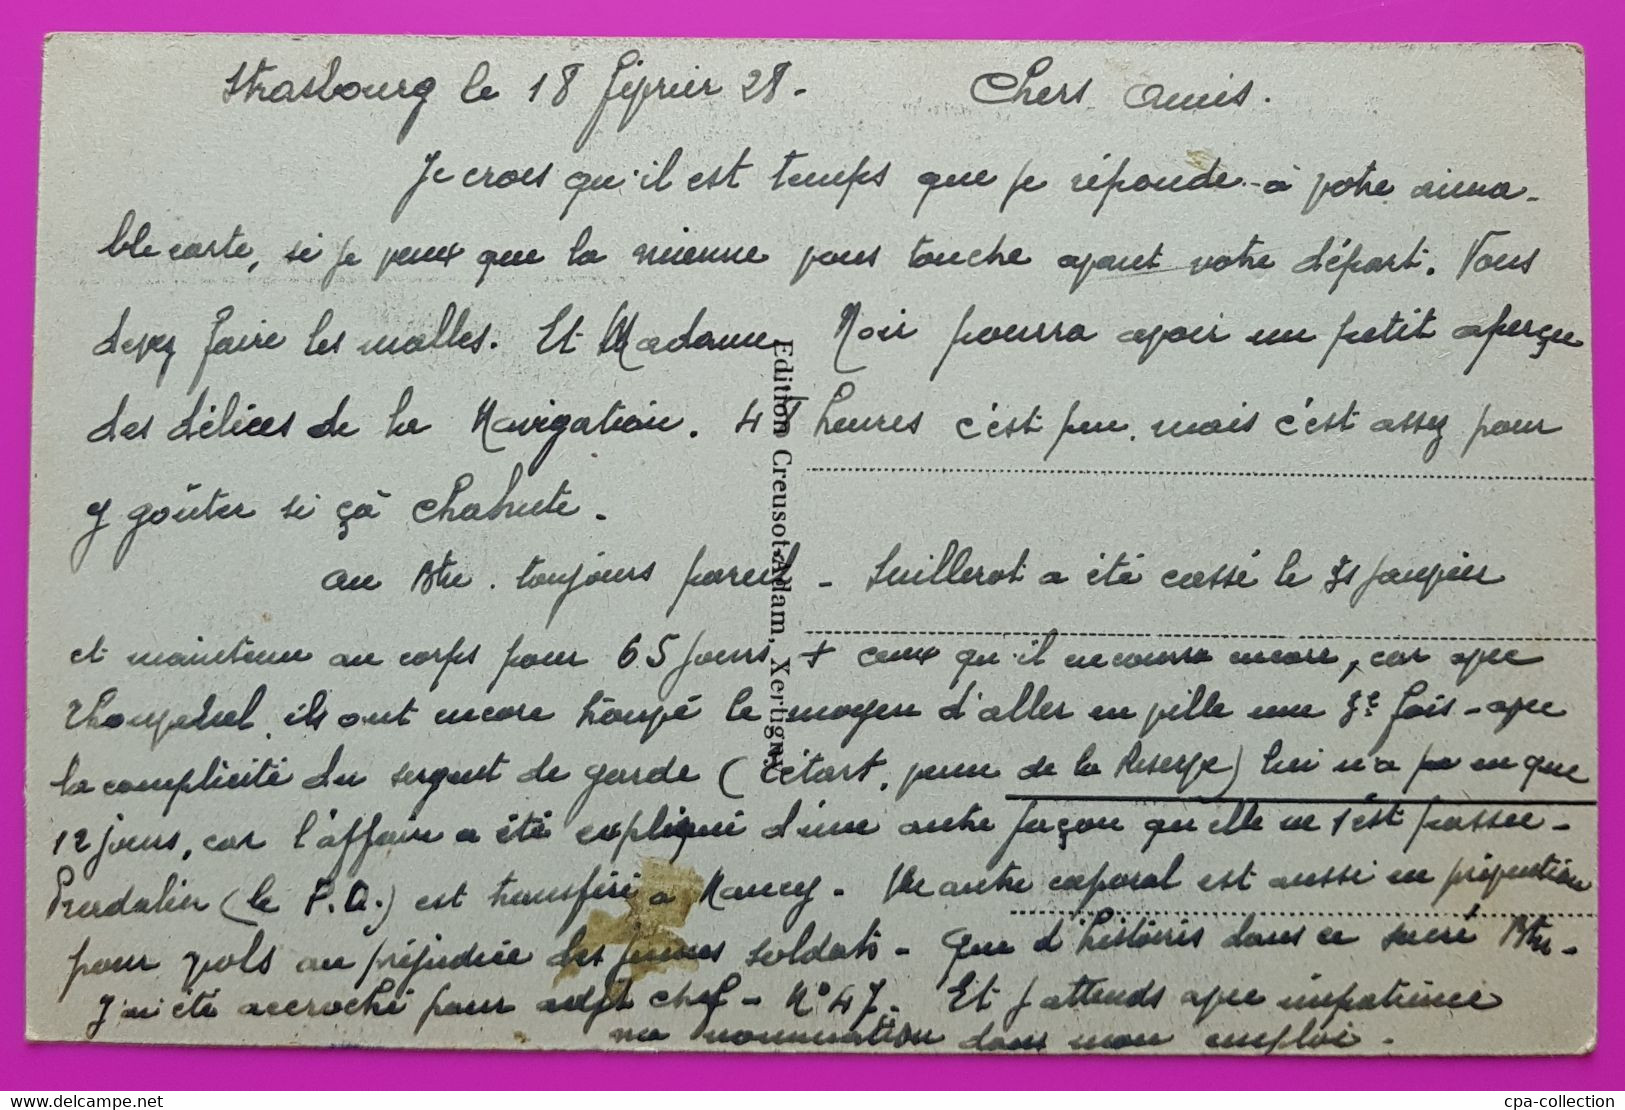 Strasbourg le 18 février 28. Chers Amis.
Je crois qu'il est temps que je réponde à votre aima-
ble carte, si je veux que la mienne vous touche avant votre départ. Vous
devez faire les malles. Et Madame Noir pourra avoir un petit aperçu
des délices de la Navigation. 48 heures c'est peu, mais c'est assez pour
y goûter si çà chahute.
au Btn. toujours pareil - Suillerot a été cassé le janvier
et maintenu au corps pour 65 jours, + ceux qu'il encourra encore, car avec
ils ont encore trouvé le moyen d'aller en ville une fois - avec
la complicité du sergent de garde (de la Reserve) lui n'a pa eu que
12 jours, car l'affaire a été expliqué d'une autre façon qu'elle ne s'est passée -
(le P.D.) est transféré a Nancy - Un autre caporal est aussi en prévention
pour vols au préjudice des jeunes soldats - Que d'histoires dans ce sacré Btn -
J'ai été accroché pour adjt chef - N° 47. Et j'attends avec impatience
ma nomination dans mon emploi -
Edition Creusot-Adam, Xertigny
cpa-collection